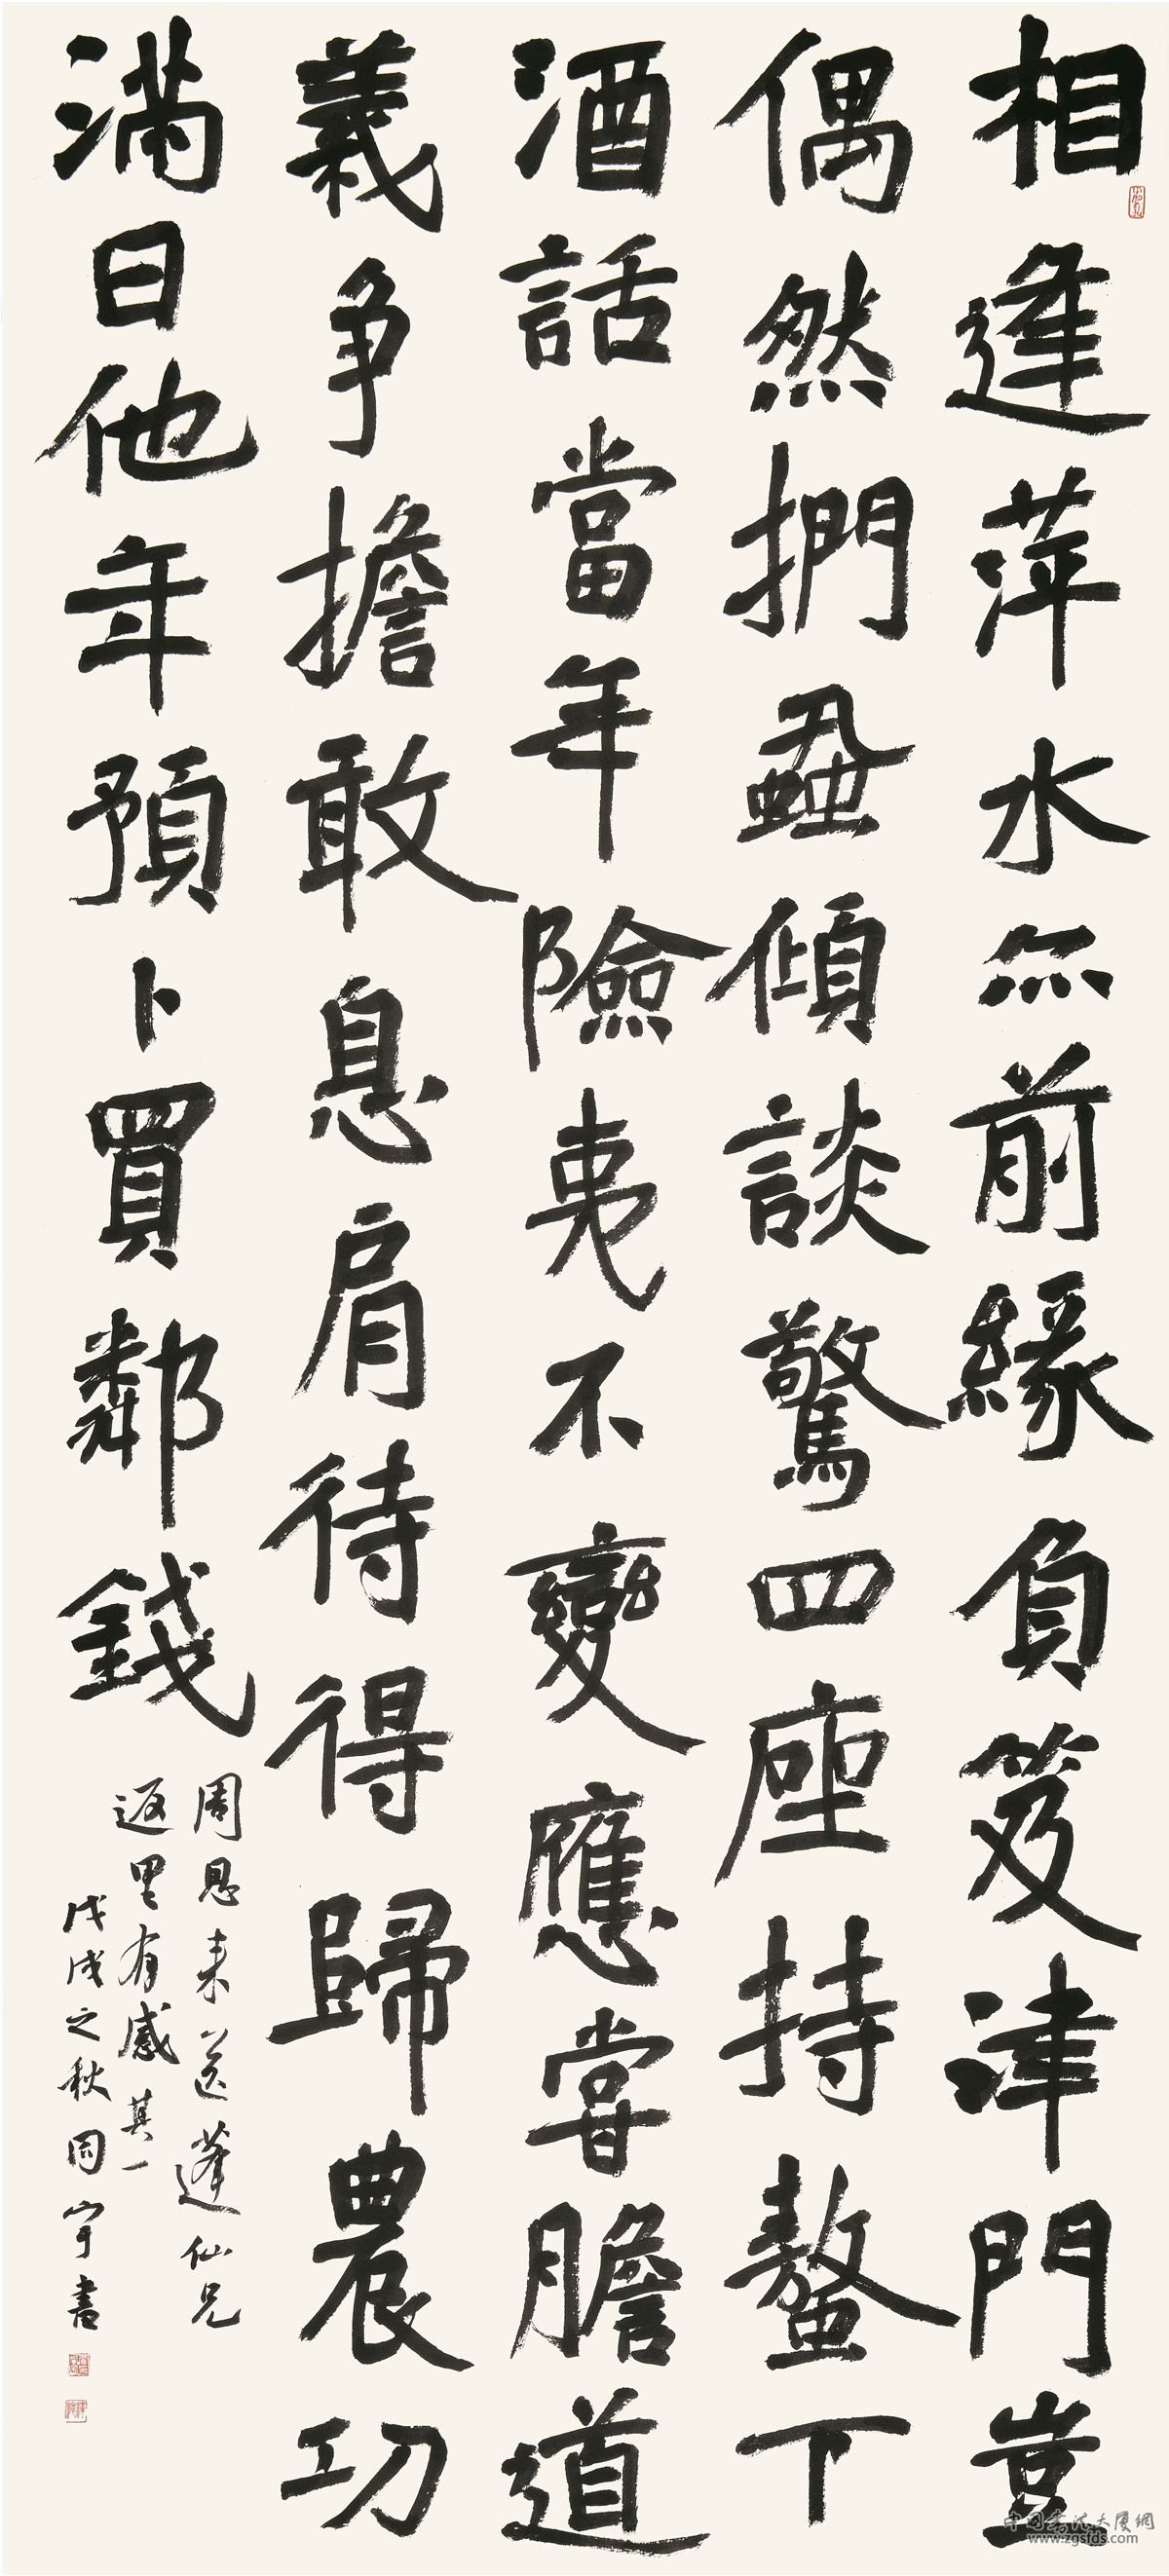 相逢萍水亦前緣負笈津門豈
偶然捫蝨傾談驚四座持螯下
酒話當年險夷不變應甞膽道
義争擔敢息肩待得歸農功
滿日他年預卜買鄰錢
周恩来送蓬仙兄
返里有感其一
戊戌之秋同宇書
中国书法大厦網
www.zgsfds.com